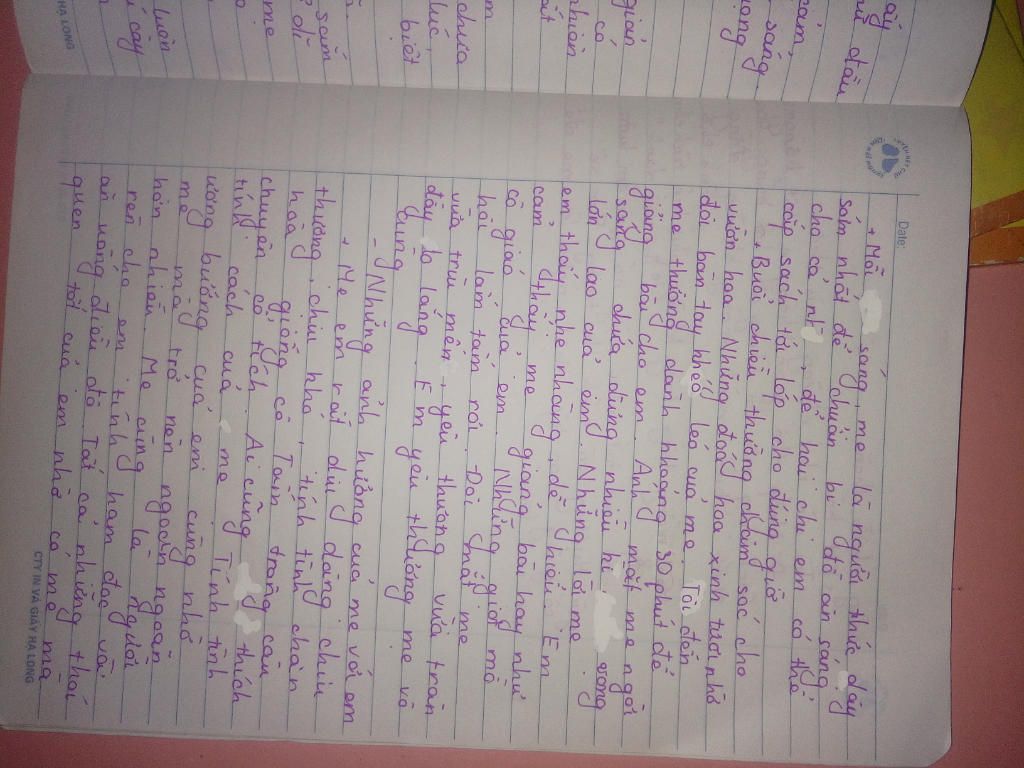 Date:
+ Mỗi sáng, mẹ là người thức dậy
sớm nhất để chuẩn bị đồ ăn sáng
cho cả nhà, để hai chị em có thể
cắp sách tới lớp cho đúng giờ
+ Buổi chiều thường chăm sóc cho
vườn hoa. Những đoá hoa xinh tươi nhờ
đôi bàn tay khéo léo của mẹ. Tối đến
mẹ thường dành khoảng 30 phút để
giảng bài cho em. Ánh mắt mẹ ngời
sáng, chứa đựng nhiều hi vọng
lớn lao của em. Những lời mẹ
em thấy nhẹ nhàng, dễ hiểu. Em
cảm thấy mẹ giảng bài hay như
cô giáo của em. Những giọt mồ
hôi lấm tấm rơi. Đôi mắt mẹ
vừa trìu mến, yêu thương vừa tràn
đầy lo lắng. Em yêu thương mẹ vô
cùng
- Những ảnh hưởng của mẹ với em
+ Mẹ em rất dịu dàng, chịu
thương, chịu khó, tính tình chan
hoà giống cô Tấm trong câu
chuyện cổ tích. Ai cũng thích
tính cách của mẹ. Tính tình
ương bướng của em cũng nhờ
mẹ mà trở nên ngoan ngoãn
hơn nhiều. Mẹ cũng là người
rèn cho em tính ham đọc và
ăn uống điều độ. Tất cả những thói
quen tốt của em nhờ có mẹ mà
CTY IN VÀ GIẤY HẠ LONG
HẠ LONG